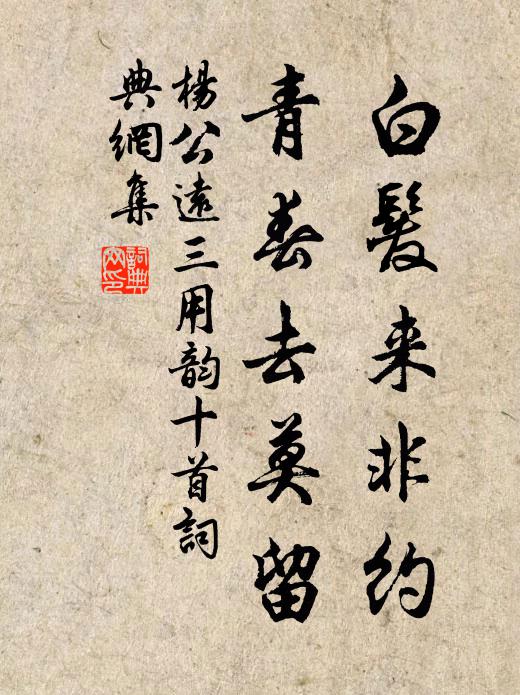 白髮来非約
青春去莫留
楊公遠三用韵十首詞
典網集
詞典